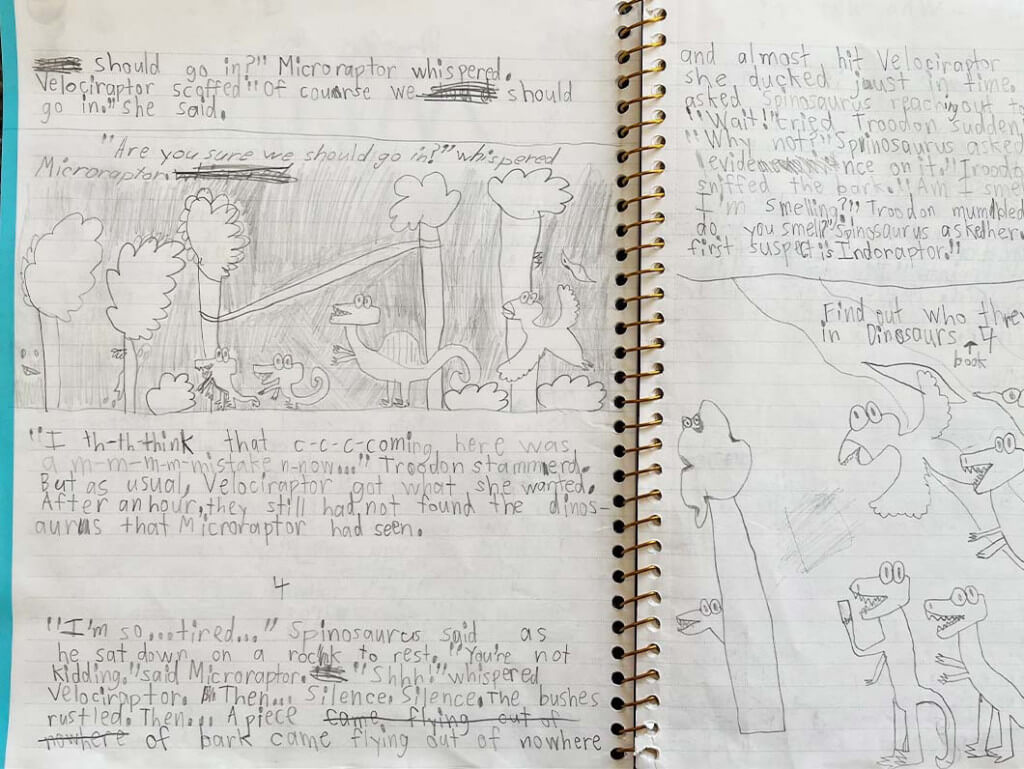 should go in?" Microraptor whispered.
Velociraptor scoffed "Of couorse we should
go in." she said.
"Are you sure we should go in?" whispered
Microraptor.
"I th-th-think that c-c-c-coming here was
a m-m-m-m-mistake n-now..." Troodon stammerd.
But as usual, Velociraptor got what she wanted.
After an hour, they still had not found the dinos-
aurus that Microraptor had seen.
4
"I'm so...tired..." Spinosaurus said as
he sat down on a rock to rest. "You're not
kidding." said Microraptor. "Shhh!" whispered
Velociraptor. Then... Silence. Silence. The bushes
rustled. Then... A piece came flying out of
nowhere of bark came flying out of nowhere
and almost hit Velociraptor
she ducked jaust in time.
asked Spinosaurus reaching out to
"Wait!" cried Troodon sudden
"Why not?" Spinosaurus asked
evidence on it." Troodo
sniffed the bark. "Am I sme
I'm smelling?" Troodon mumbled
do you smell" Spinosaurus asked her
first suspect is Indoraptor."
Find out who thre
in Dinosaurs 4
book